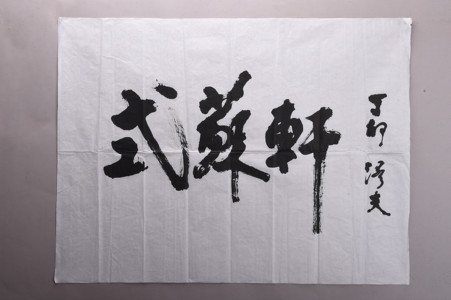 式蘇軒
丁卯 夫